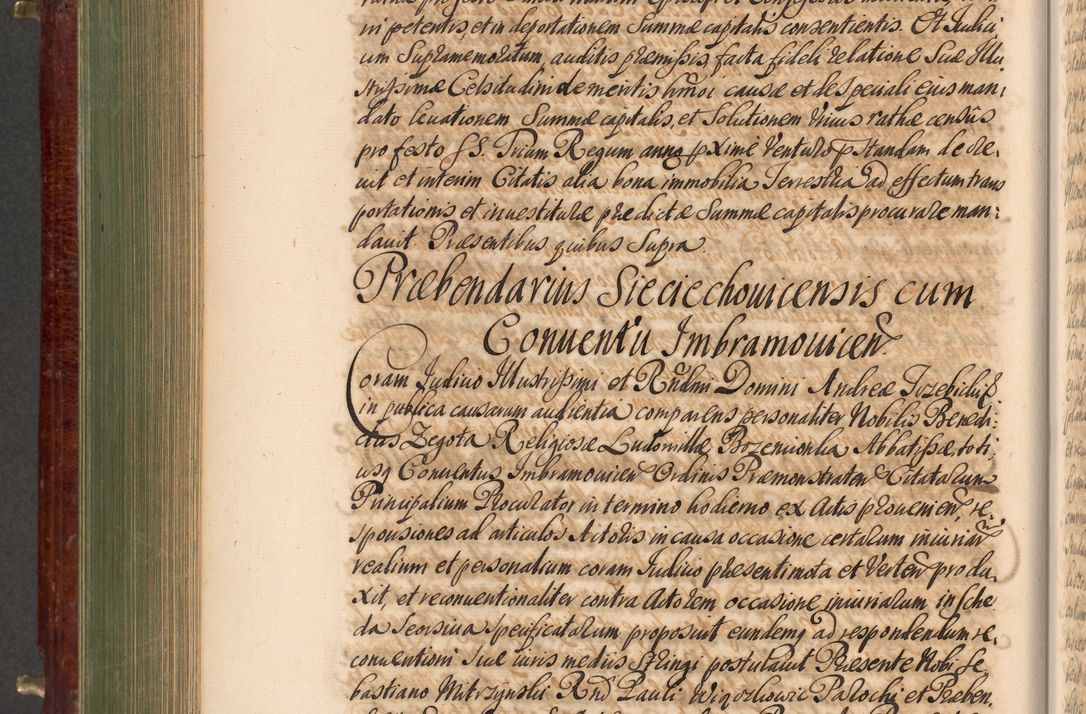 in petentis et in deportationem Summæ capitalis consentientis. Et Iudici
um Supramemoratum, auditis præmissis, facta fideli relatione Suæ Illu
strissimæ Celsitudini de meritis hmoi causæ et de speciali eius man:
dato leuationem Summæ capitalis, et Solutionem Vnius rathæ censûs
pro festo SS. Trium Regum anno pximè Venturo pstandam decre,
uit et interim Citatis alia bona immobilia Terrestria ad effectum trans
portationis et inuestituræ prædictæ Summæ capitalis procurare man:
dauit. Præsentibus quibus Supra.
Præbendarius Sieciechouicensis cum
Conuentu Imbramouicen.
Coram Iudicio Illustrissimi et Rndmi Domini Andreæ Trzebicki E.
in publica causarum audientia comparens personaliter Nobilis Benedi:
ctus Zegota Religiosæ Ludomillæ Bozenionka Abbatissæ, toti,
usq Conuentus Imbramouicen Ordinis Præmonstraten Citatarum
Principalium Procurator in termino hodierno ex Actis prouenien, re
sponsiones ad articulos Actoris in causa occasione certarum iniuriar
realium et personalium coram Iudicio præsenti mota et Verten produ,
xit, et reconuentionaliter contra Actorem occasione iniuriarum in sche
da Seorsiua specificatarum proposuit eundemq ad respondendum re,
conuentioni siue iuris mediis Stringi postulauit Præsente Nobi Se,
bastiano Mitrzynski Rnd Pauli Parochi et Præben,